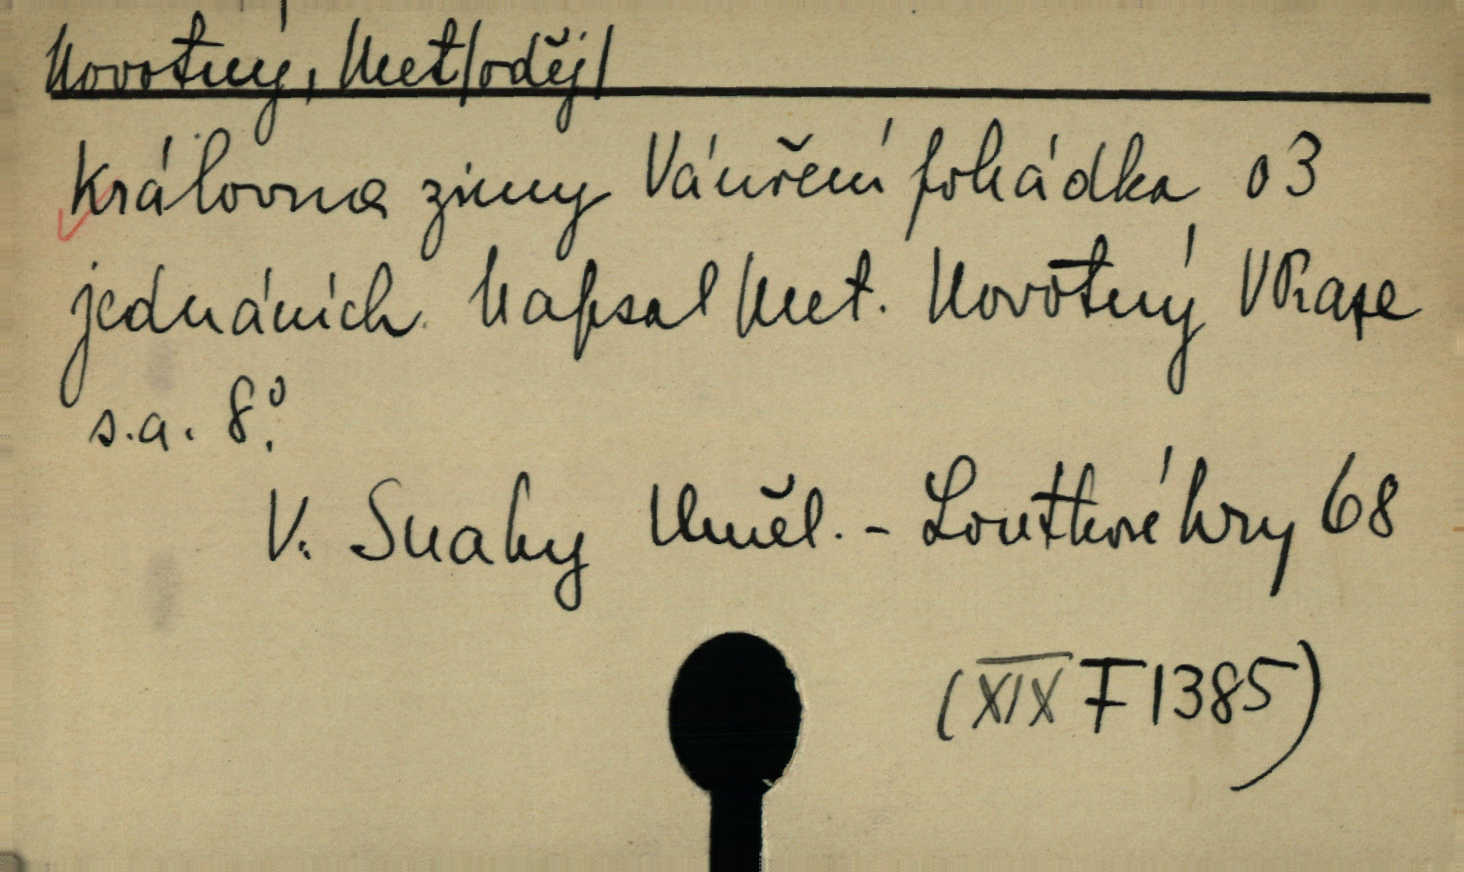 Novotný, Met/oděj/
Královna zimy Vánoční pohádka o 3
jednáních. Napsal Met. Novotný V Praze
s.a. 8°.
V. Snahy Uměl. - Loutkové hry 68
(XIX F 1385)